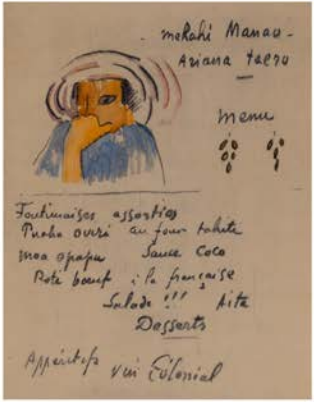 merahi Manao -
Ariana taero
menu
assorties
Pucha oviri au four tahiti
moa opapa Sauce Coco
Roti bœuf à la française
Salade !!! Aita
Desserts
Appéritifs vin Colonial